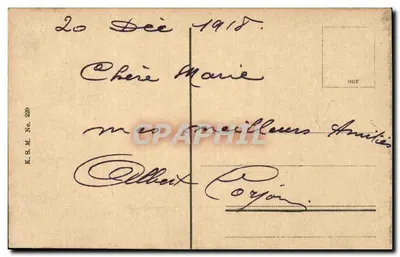 20 Déc 1918.
Chère Marie
mes meilleurs Amitiés
Albert
K. S. M. No. 229
CPAPHIL